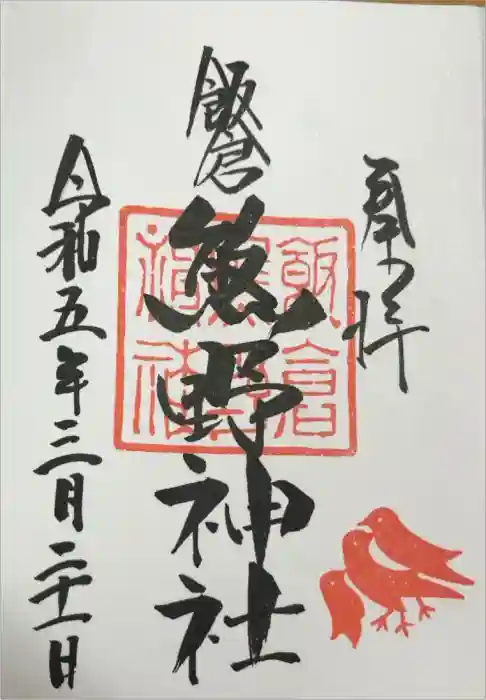 奉拝
飯倉
熊野神社
飯倉
熊野
神社
令和五年三月二十一日